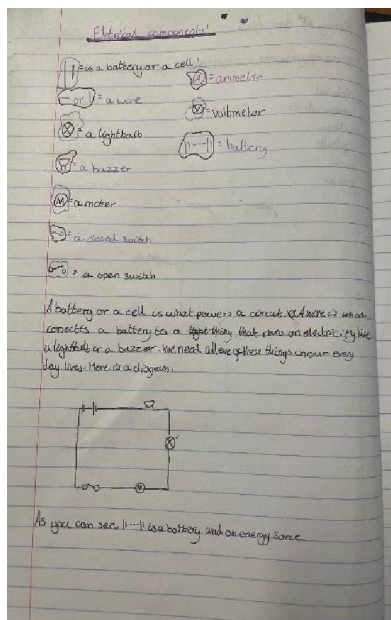 Eletrical components
= is a battery or a cell
A = ammeter
- or | = a wire
V = voltmeter
= a lightbulb
= battery
= a buzzer
M = a moter
= a closed switch
= a open switch
A battery or a cell is what powers a circut. A wire is which
conects a battery to a thing that runs on electricity like
a lightbulb or a buzzer. We need all of these things in our every
day lives. Here is a diagram.
As you can see, is a battery and an energy sorce